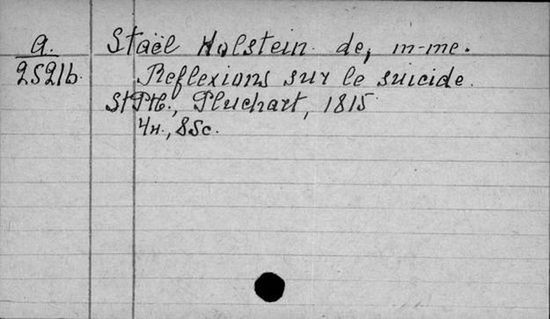 a.
2521b.
Staël Holstein de, m-me.
Reflexions sur le suicide.
St Ptb., Pluchart, 1815
4н., 85c.